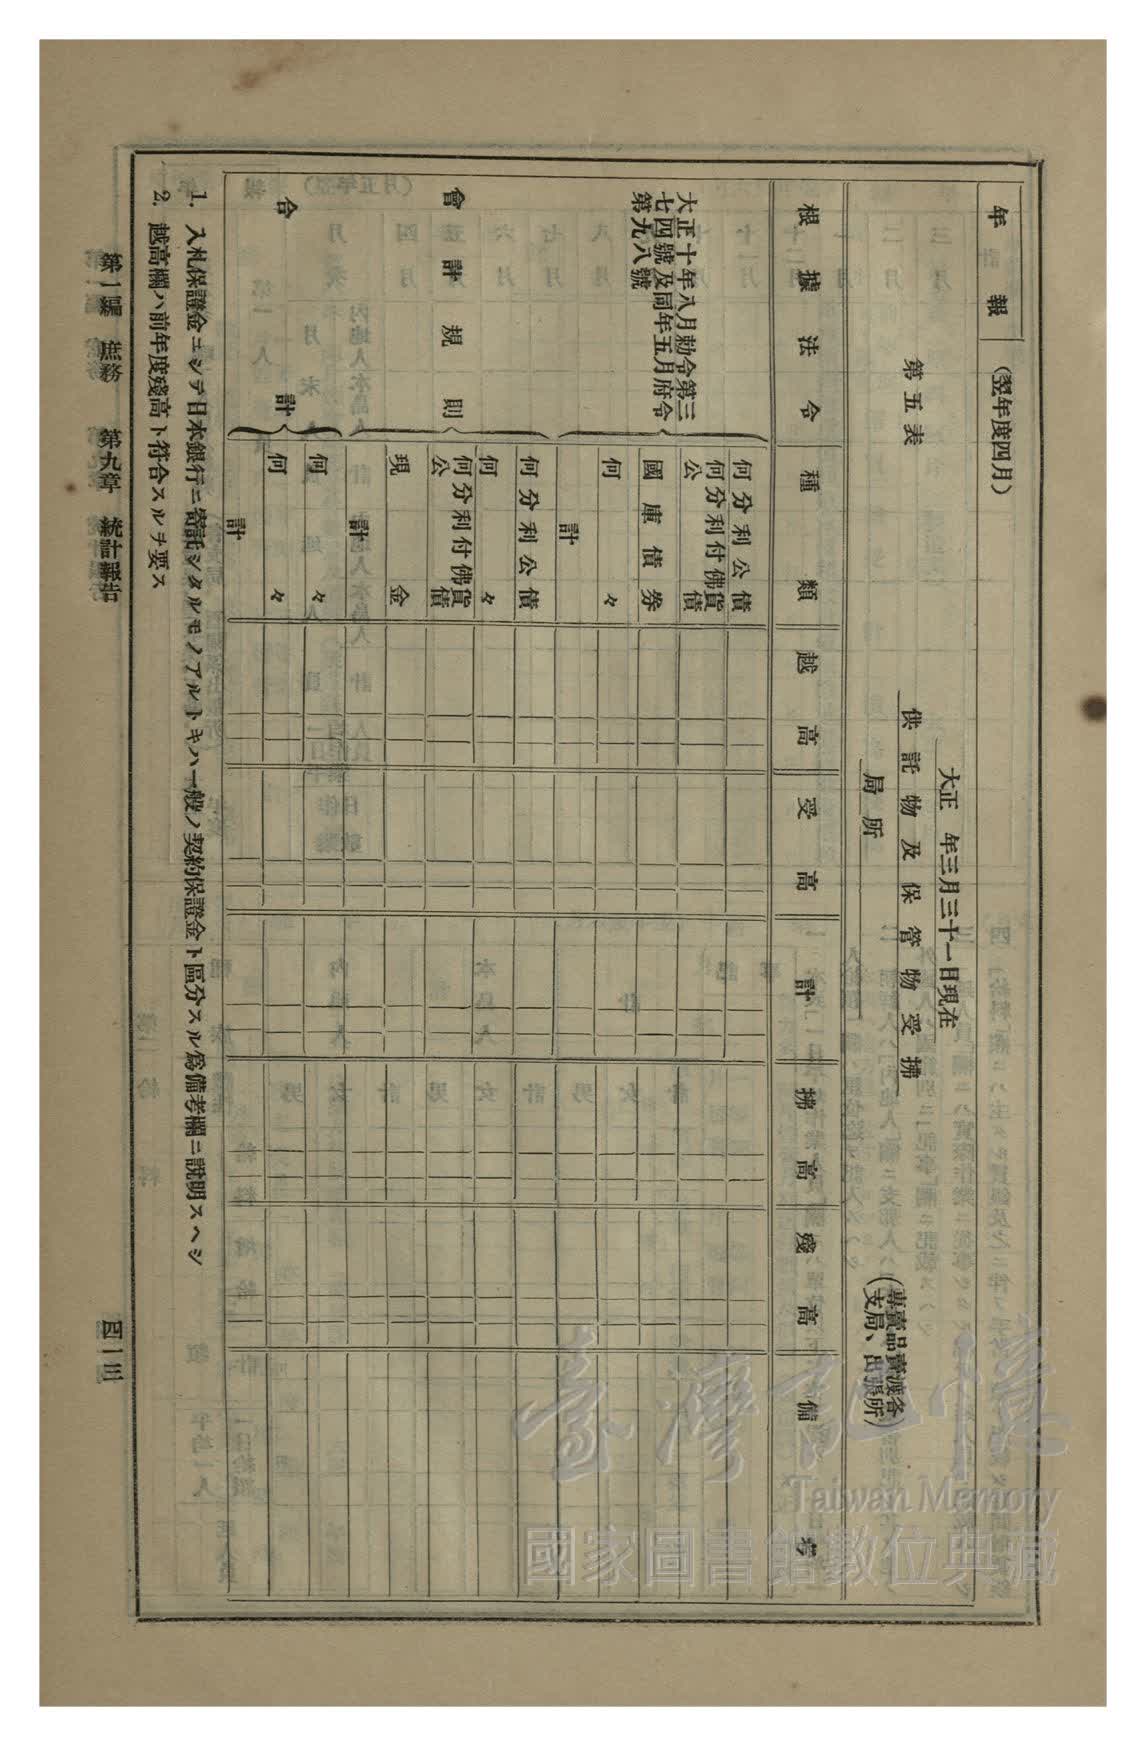 年報
(翌年度四月)
第五表
大正　年三月三十一日現在
供託物及保管物受拂
局所
(專賣品賣渡各
支局、出張所)
根據法令
種類
越高
受高
計
拂高
殘高
備考
大正十年八月勅令第三
七四號及同年五月府令
第九八號
何分利公債
何分利付佛貨
公債
國庫債券
何々
計
會計規則
何分利公債
何々
何分利付佛貨
公債
現金
計
合計
何々
何々
計
1. 入札保證金ニシテ日本銀行ニ寄託シタルモノアルトキハ一般ノ契約保證金ト區分スル爲備考欄ニ說明スヘシ
2. 越高欄ハ前年度殘高ト符合スルヲ要ス
第一編　庶務　第九章　統計報告
四一三
臺灣記憶
Taiwan Memory
國家圖書館數位典藏